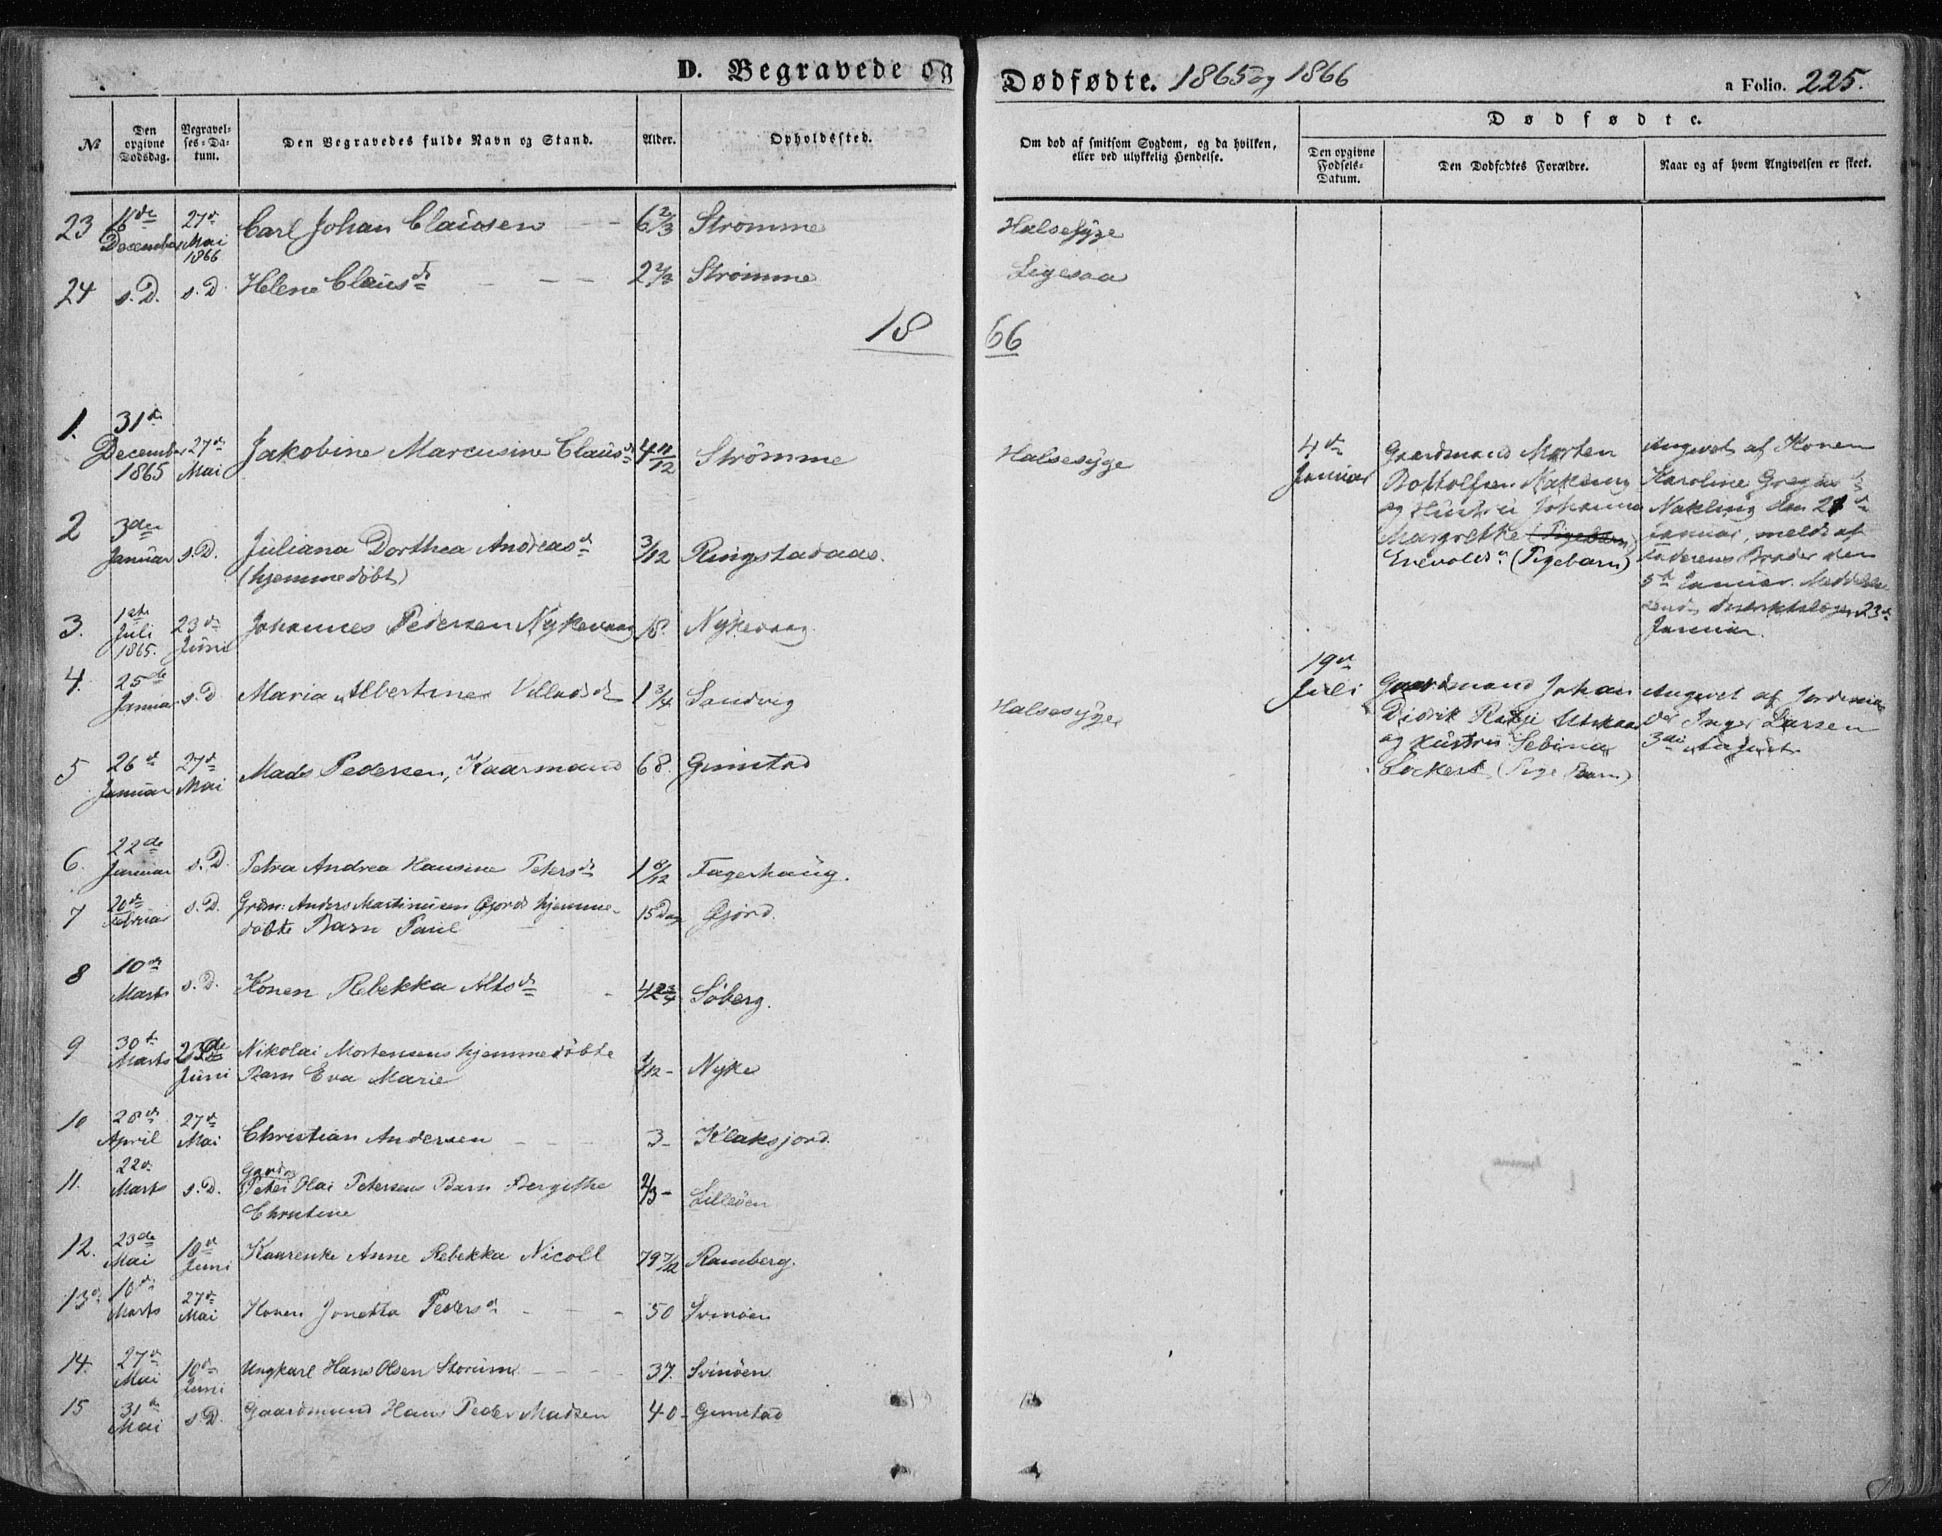 D. Begravede og Dødfødte. 1865 og 1866 a Folio. 225.
№
Den opgivne Dødsdag.
Begravel-
ses-Da-
tum.
Den Begravedes fulde Navn og Stand.
Alder.
Opholdssted.
Om død af smitsom Sygdom, og da hvilken,
eller ved ulykkelig Hendelse.
Dødfødte.
Den opgivne
Fødsels-
Datum.
Den Dødfødtes Forældre.
Naar og af hvem Angivelsen er skeet.
23 December 27de Mai 1866 Carl Johan Clausen 6 2/3 Strømme Halsesyge
24 s. D. s. D. Helene Clausd. Strømme Ligesaa
18 66
1. 31te December 1865 27de Mai Jakobine Marcusine Clausd. 4 11/12 Strømme Halsesyge
2 3die Januar s. D. Juliana Dorthea Andreasd. 3/12 Ringstadaas.
(hjemmedøbt)
3. 1ste Juli 1865. 23de Juni Johannes Pedersen Nykevaag 18. Nykevaag
4. 25de Januar s. D. Maria Albertine Villadsd. 1 3/4 Sandvig Halsesyge
5 26de Januar 27de Mai Mads Pedersen, Kaarmand 68. Gimstad
6. 22de Januar s. D. Petra Andrea Hansine Petersd. 1 8/12 Fagerhaug.
7 20de Februar s. D. Grdm: Anders Martinusen Gjords hjemme-
døbte Barn Paul 15 Dag Gjørd.
8 10de Marts s. D. Konen Rebekka Altsd. 42 3/4 Søberg.
9 30te Marts 23de Juni Nikolai Mortensens hjemmedøbte
Barn Eva Marie 1/12 - Nyke
10 28de April 27de Mai Christian Andersen 3 - Klaksjord
11. 22de Marts s. D. Gaardm
Peter Olai Petersens Barn Bergithe
Christine 2/3 - Lilleøen
12. 23de Mai 18de Juni Kaarenke Anne Rebekka Nicoll 79 7/12 Ramberg.
13. Marts 27de Mai Konen Jonetta Pedersd. 50 Svinøen
14. 27de Mai 18de Juni Ungkarl Hans Olsen Storum 37. Svinøen
15 31te Mai s. D. Gaardmand Hans Peder Madsen 40 - Gimstad
4de Januar
Gaardmand Morten
Bottolfsen Nakling
og Hustru Johanna
Margrethe (Pigebarn)
Enevoldsd. (Pigebarn)
Angivet af Konen
Karoline
Nakling den
Januar, meldt af
Faderens Broder den
5te Januar.
23de
Januar.
19de Juli
Gaardmand Johan
Didrik
og Hustru Sebina
Lockert (Pige Barn)
Angivet af Jordemo
der Inger Larsen
3die August